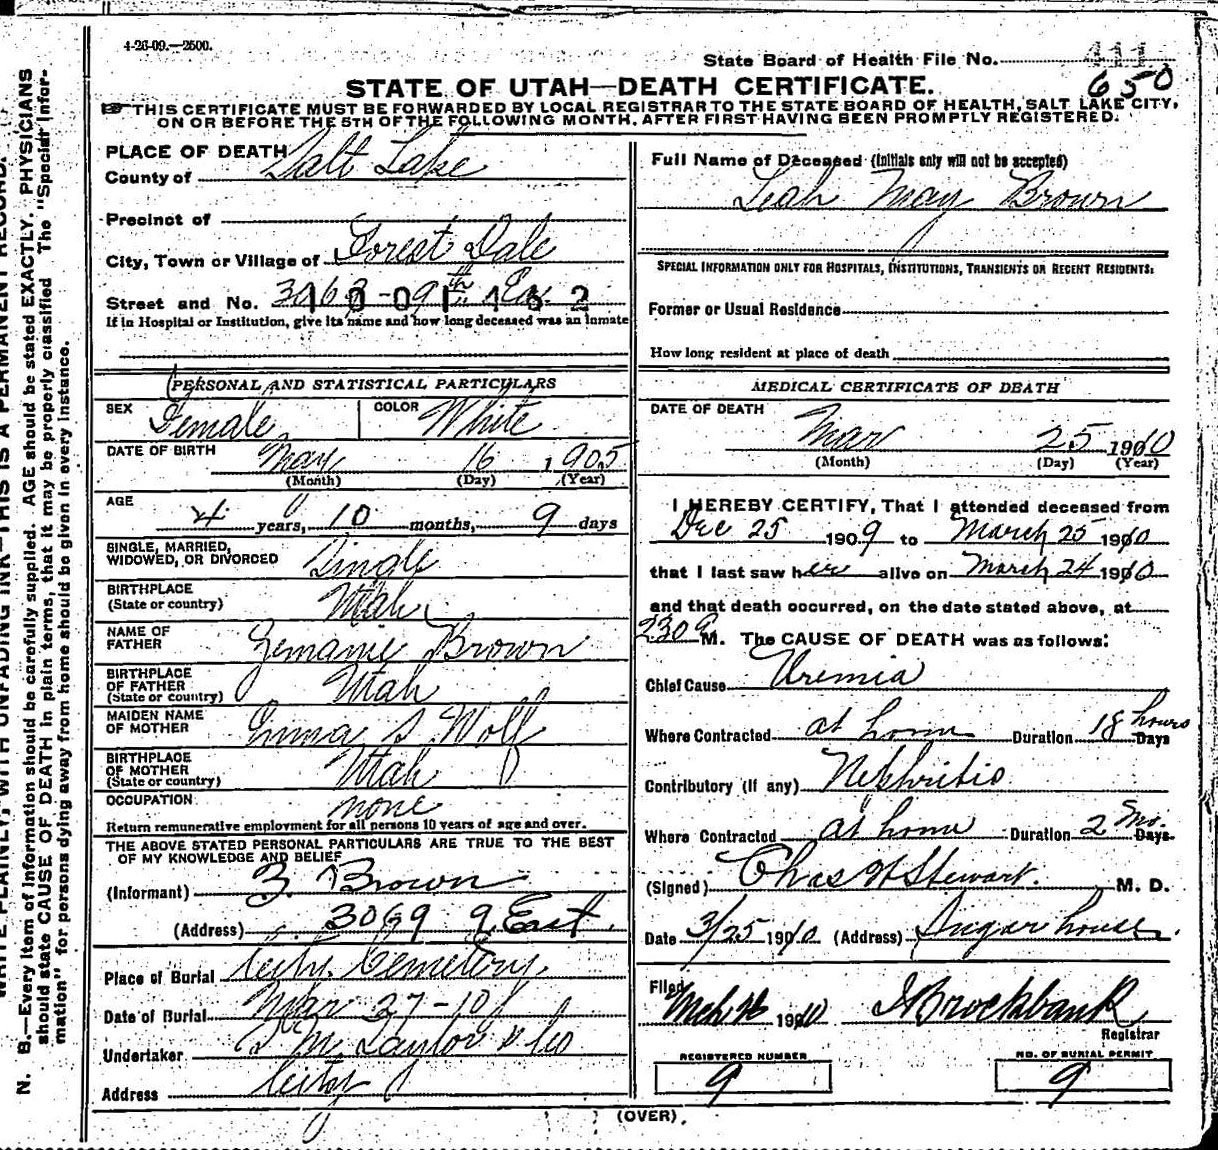 4-26-09.—2500.
State Board of Health File No. 411
650
STATE OF UTAH—DEATH CERTIFICATE.
THIS CERTIFICATE MUST BE FORWARDED BY LOCAL REGISTRAR TO THE STATE BOARD OF HEALTH, SALT LAKE CITY,
ON OR BEFORE THE 5TH OF THE FOLLOWING MONTH, AFTER FIRST HAVING BEEN PROMPTLY REGISTERED.
PLACE OF DEATH
County of Salt Lake
Precinct of
City, Town or Village of Forest Dale
Street and No. 9th Ea
1001162
If in Hospital or Institution, give its name and how long deceased was an inmate
PERSONAL AND STATISTICAL PARTICULARS
SEX Female COLOR White
DATE OF BIRTH May 16 1905
(Month) (Day) (Year)
AGE
4 years, 10 months, 9 days
SINGLE, MARRIED,
WIDOWED, OR DIVORCED Single
BIRTHPLACE
(State or country) Utah
NAME OF
FATHER Zemanie Brown
BIRTHPLACE
OF FATHER
(State or country) Utah
MAIDEN NAME
OF MOTHER Emma S Wolf
BIRTHPLACE
OF MOTHER
(State or country) Utah
OCCUPATION none
Return remunerative employment for all persons 10 years of age and over.
THE ABOVE STATED PERSONAL PARTICULARS ARE TRUE TO THE BEST
OF MY KNOWLEDGE AND BELIEF
(Informant) Z. Brown
(Address) 3069 9 East.
Place of Burial City Cemetery.
Date of Burial Mar 27-10
Undertaker S. M. Taylor & Co
Address City
Full Name of Deceased (Initials only will not be accepted)
Leah May Brown
SPECIAL INFORMATION ONLY FOR HOSPITALS, INSTITUTIONS, TRANSIENTS OR RECENT RESIDENTS:
Former or Usual Residence
How long resident at place of death
MEDICAL CERTIFICATE OF DEATH
DATE OF DEATH
Mar 25 1910
(Month) (Day) (Year)
I HEREBY CERTIFY, That I attended deceased from
Dec 25 1909 to March 25 1910
that I last saw her alive on March 24 1910
and that death occurred, on the date stated above, at
230 M. The CAUSE OF DEATH was as follows:
Chief Cause Uremia
Where Contracted at home Duration 18 hours Days
Contributory (If any) Nephritis
Where Contracted at home Duration 2 Mo. Days.
(Signed) Chas W Stewart. M. D.
Date 3/25 1910 (Address) Sugar house.
Filed
Mch 26 1910 Brockbank
Registrar
REGISTERED NUMBER
9
NO. OF BURIAL PERMIT
9
(OVER)
N. B.—Every item of information should be carefully supplied. AGE should be stated EXACTLY. PHYSICIANS
should state CAUSE OF DEATH in plain terms, that it may be properly classified. The "Special Infor-
mation" for persons dying away from home should be given in every instance.
WRITE PLAINLY, WITH UNFADING INK—THIS IS A PERMANENT RECORD.